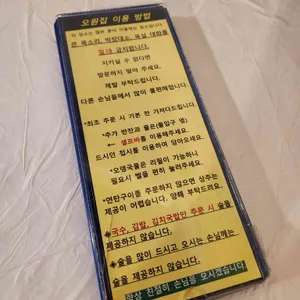 오원집 이용 방법
이 장소는 많은 분이 이용하는 장소입니다.
큰 목소리, 박장대소, 욕설 대화를
절대 금지합니다.
지키실 수 없다면
방문하지 말아 주세요.
제발 부탁드립니다.
다른 손님들께서 많이 불편해합니다.
*최초 주문 시 기본 찬 가져다드립니다.
*추가 반찬과 물은(출입구 옆)
← 셀프바를 이용해주세요.
드시던 접시를 이용하여 담아오세요.
*오뎅국물은 리필이 가능하니
필요시 벨을 편히 눌러주세요.
*연탄구이를 주문하지 않으면 상추는
제공이 어렵습니다. 양해 부탁드려요.
*국수, 김밥, 김치국밥만 주문 시 술을
제공하지 않습니다.
*술을 많이 드시고 오시는 손님에는
술을 제공하지 않습니다.
항상 친절히 손님을 모시겠습니다